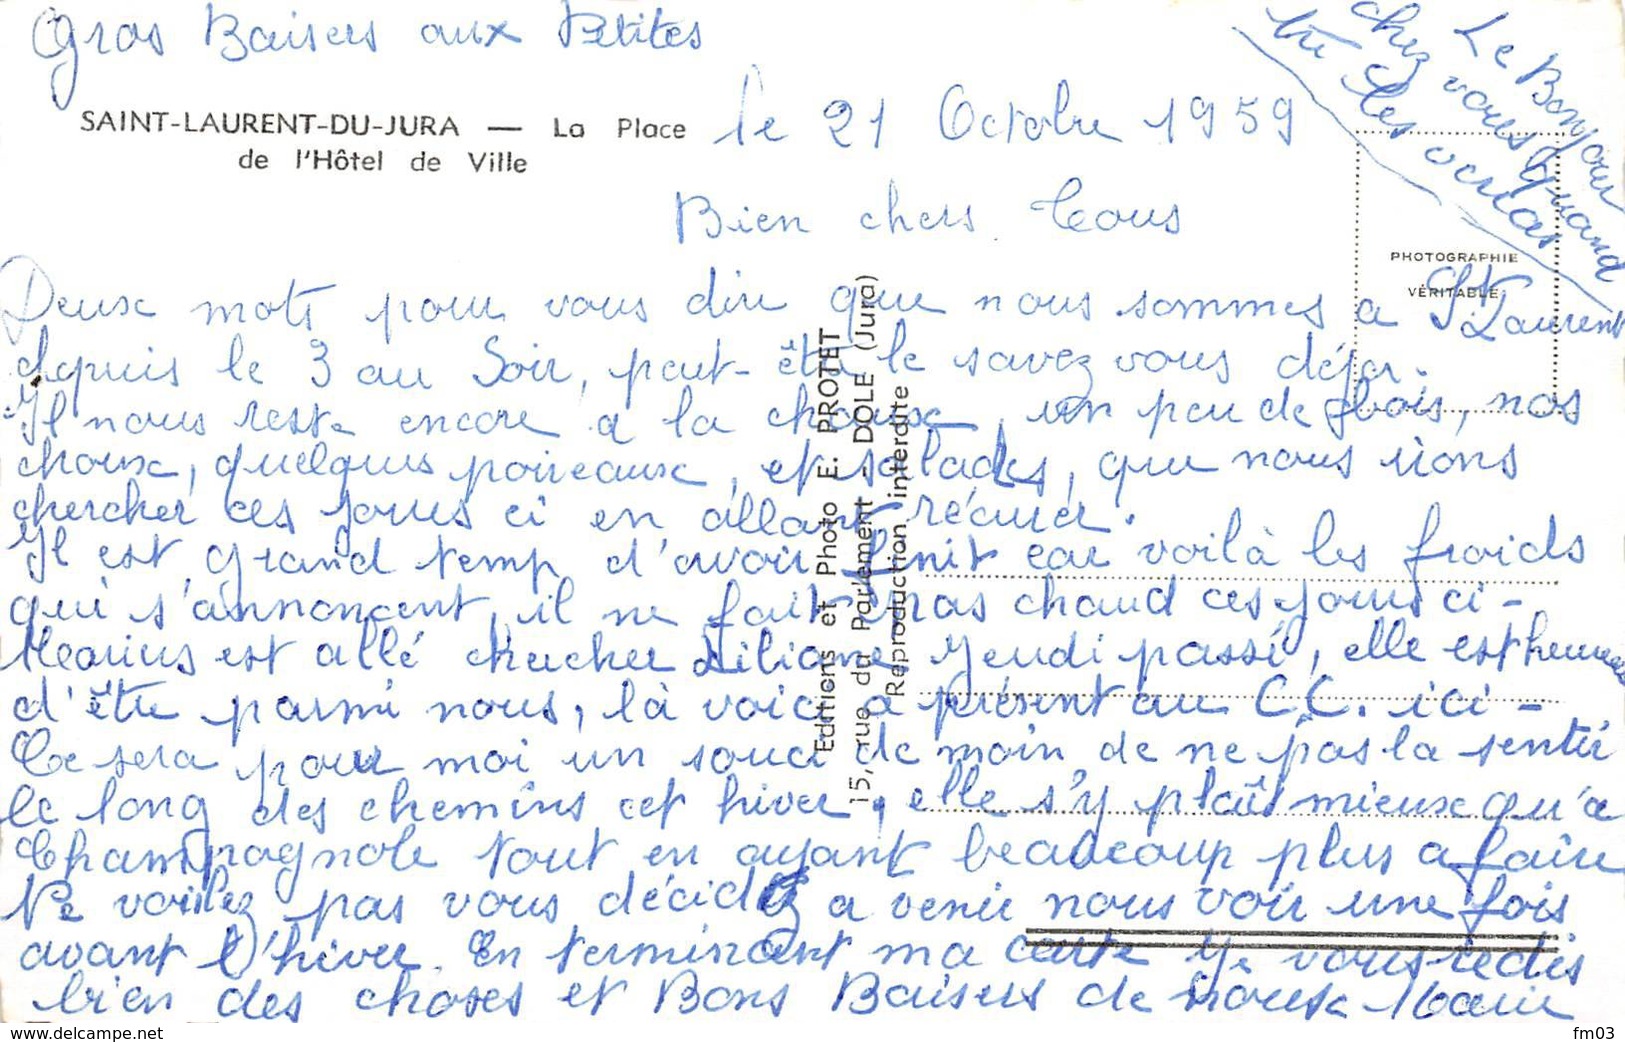 Gros Baisers aux Petites
Le Bonjour
chez vous quand
tu les verras
SAINT-LAURENT-DU-JURA — La Place
de l'Hôtel de Ville
le 21 Octobre 1959
Bien chers Tous
PHOTOGRAPHIE
VÉRITABLE
Deux mots pour vous dire que nous sommes a St Laurent
depuis le 3 au Soir, peut-être le savez vous déja.
Il nous reste encore a la chaux, un peu de bois, nos
choux, quelques poireaux, et salades, que nous irons
chercher ces jours ci en allant récurer.
Il est grand temp d'avoir finit car voilà les froids
qui s'annoncent, il ne fait pas chaud ces jours ci -
Marius est allé chercher Liliane Jeudi passé, elle est heureuse
d'être parmi nous, là voici a présent au C.C. ici -
Ce sera pour moi un souci de moin de ne pas la sentir
le long des chemins cet hiver, elle s'y plaît mieux qu'a
Champagnole tout en ayant beaucoup plus a faire
Ne voulez pas vous décidez a venir nous voir une fois
avant l'hiver. En terminant ma carte Je vous redis
bien des choses et Bons Baisers de nous
Editions et Photo E. PROTET
15, rue du Parlement - DOLE (Jura)
Reproduction interdite
www.delcampe.net
fm03